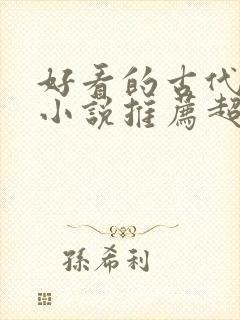 好看的古代
小说推薦超
孫希利